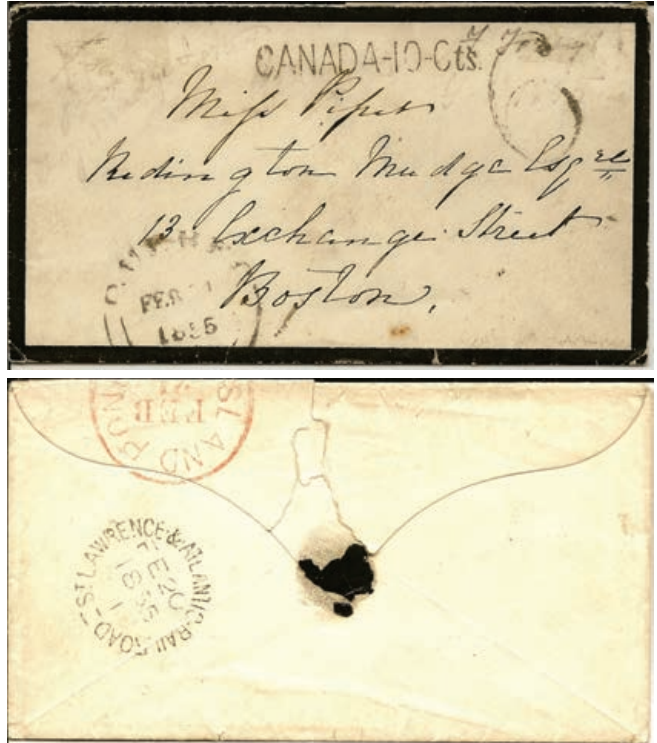 CANADA-10-Cts.
6
Miss Piper
Redington Mudge Esqre
13 Exchange Street
Boston,
FEB
1855
FEB
ISLAND PON
ST LAWRENCE & ATLANTIC RAILROAD
FE 20
1855